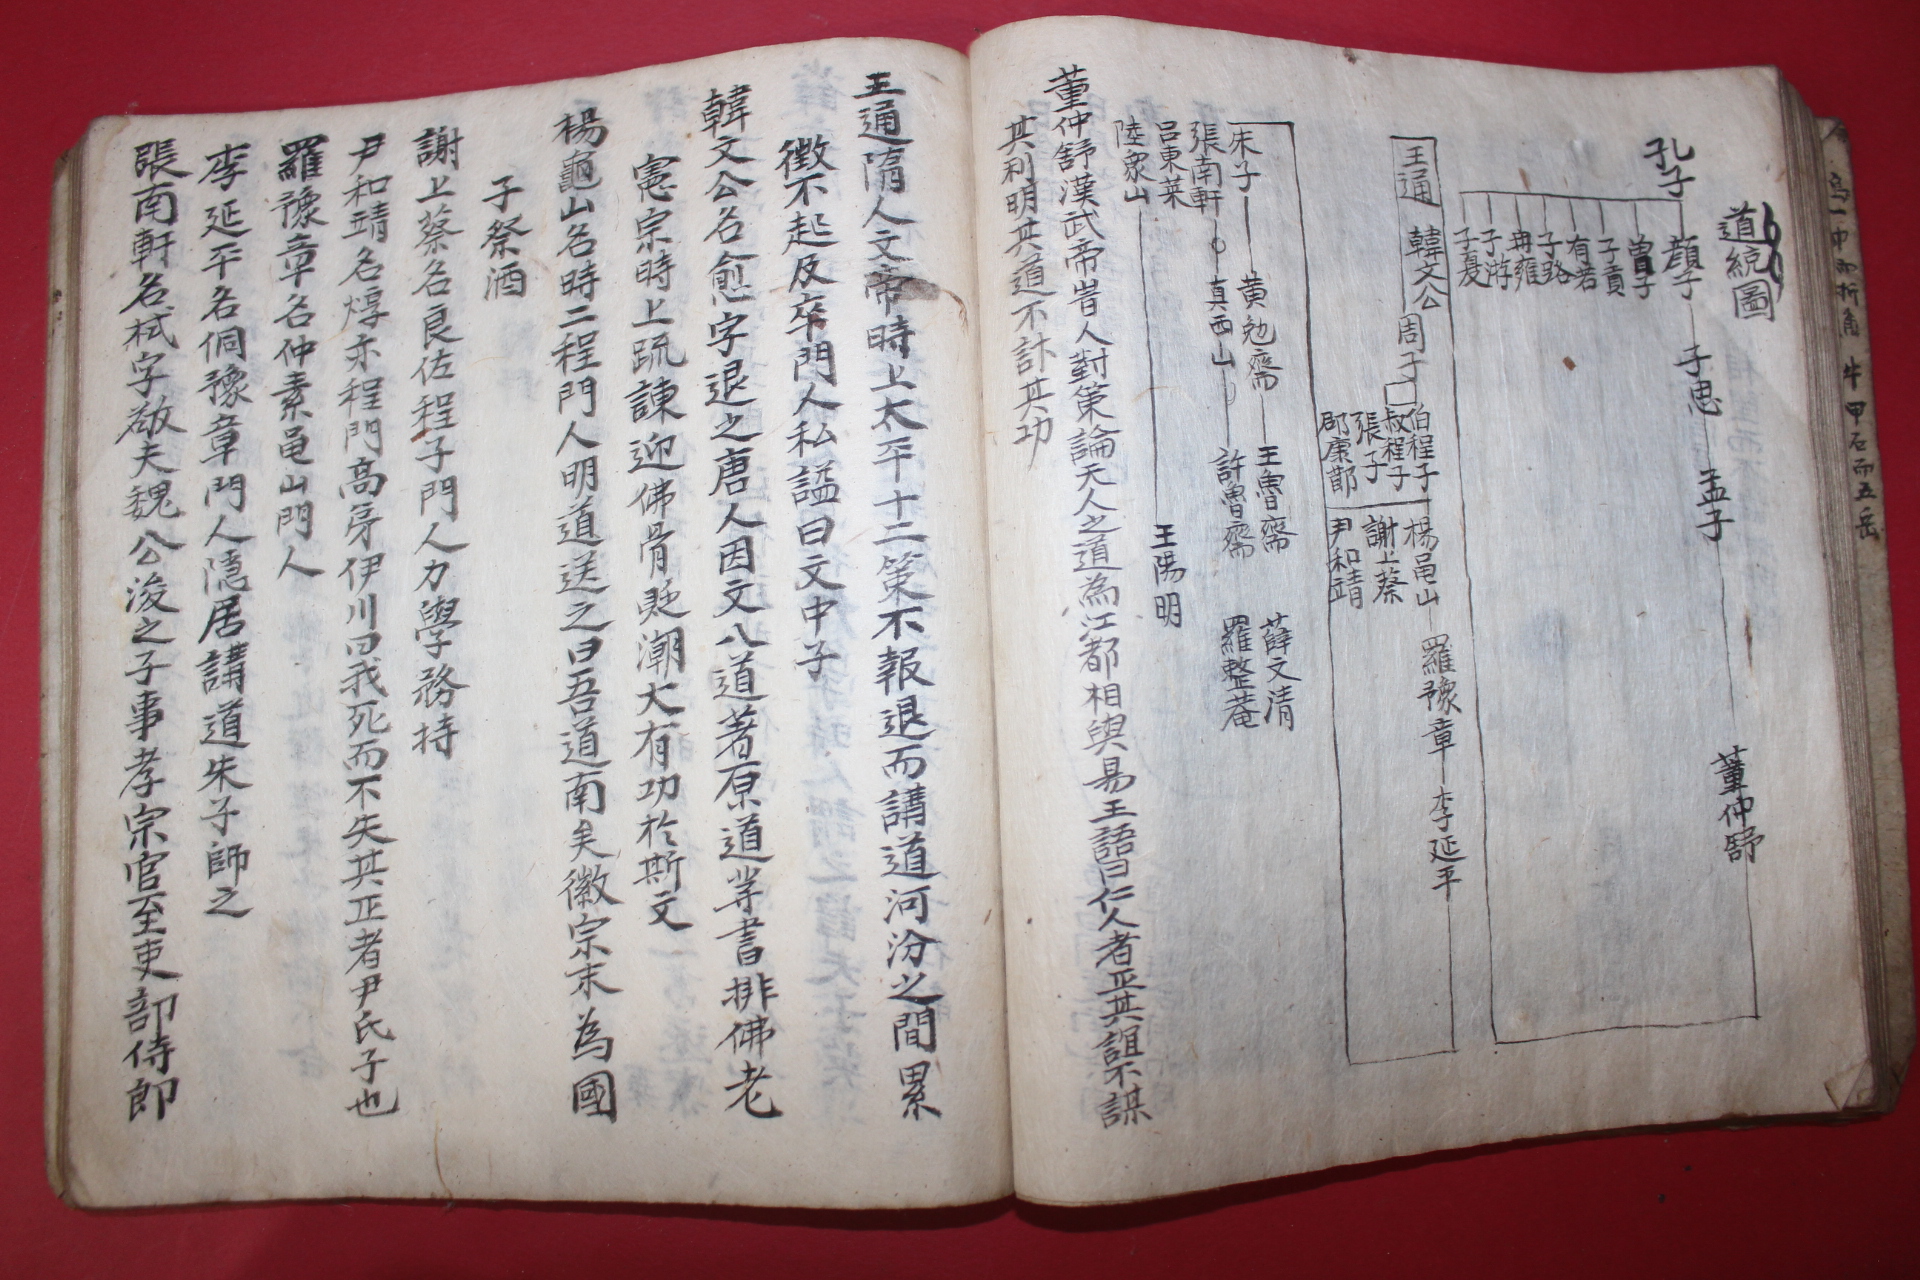 道統圖
孔子
顔子 子思 孟子 董仲舒
曾子
子貢
有若
子路
冉雍
子游
子夏
王通 韓文公 周子
伯程子
叔程子
張子
邵康節
楊龜山 羅豫章 李延平
謝上蔡
尹和靖
朱子 黄勉齋 王魯齋 薛文清
張南軒 真西山 許魯齋 羅整菴
呂東萊
陸象山 王陽明
董仲舒漢武帝時人對策論天人之道為江都相與易王語曰仁人者正其誼不謀
其利明其道不計其功
王通隋人文帝時上太平十二策不報退而講道河汾之間累
徵不起及卒門人私諡曰文中子
韓文公名愈字退之唐人因文入道著原道等書排佛老
憲宗時上疏諫迎佛骨貶潮大有功於斯文
楊龜山名時二程門人明道送之曰吾道南矣徽宗末為國
子祭酒
謝上蔡名良佐程子門人力學務持
尹和靖名焞亦程門高弟伊川曰我死而不失其正者尹氏子也
羅豫章名仲素黽山門人
李延平名侗豫章門人隱居講道朱子師之
張南軒名栻字敬夫魏公浚之子事孝宗官至吏部侍郎